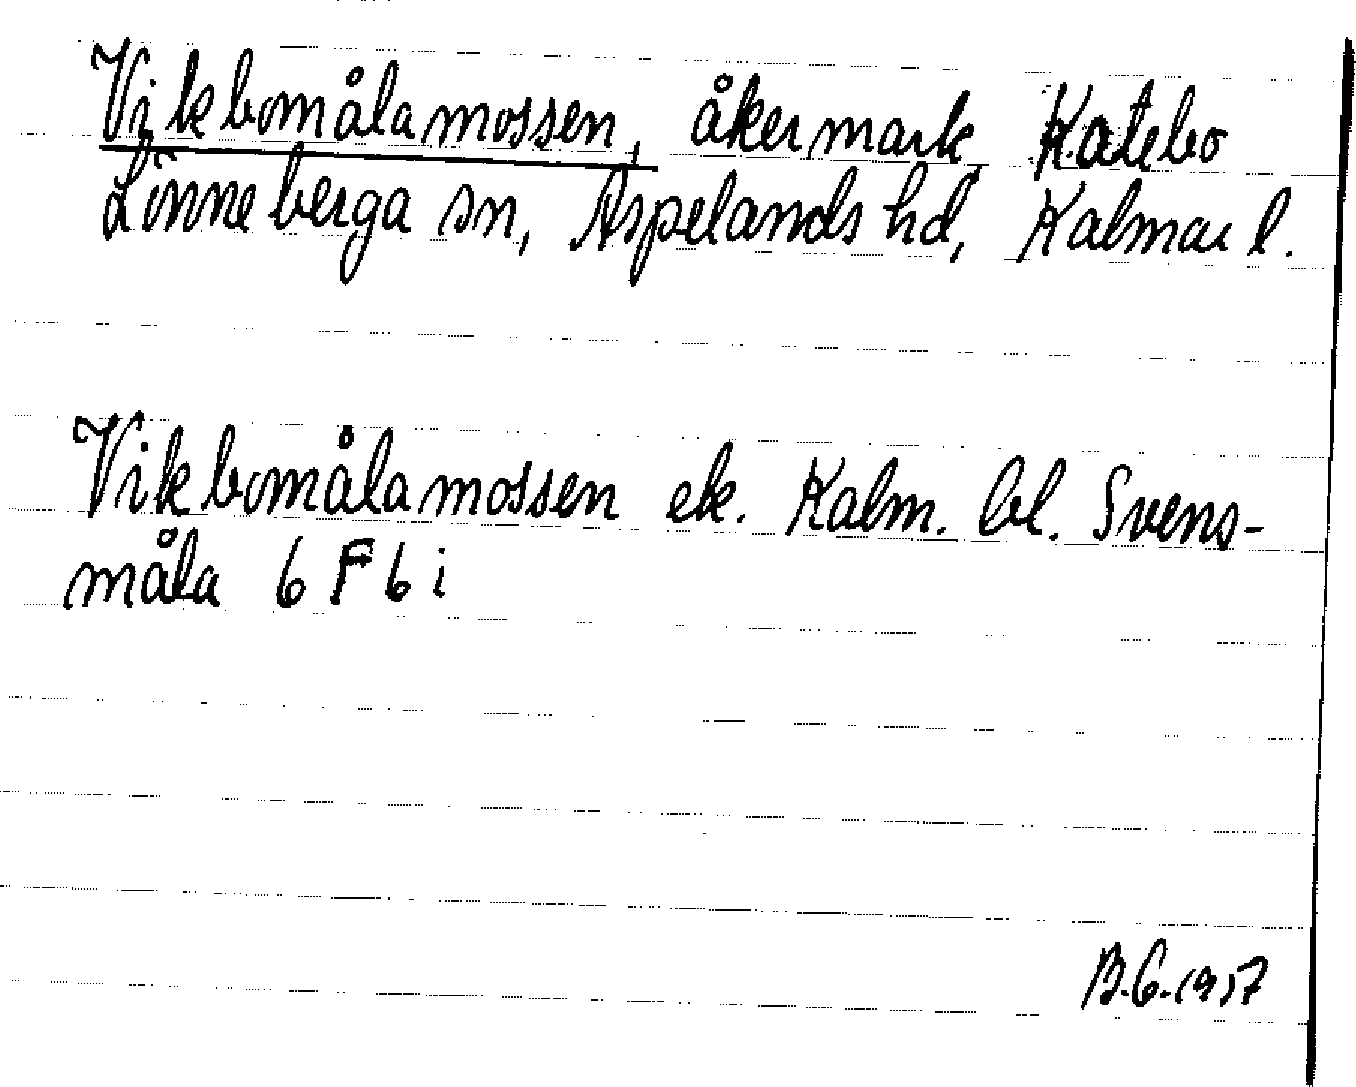 Vikbomålamossen, åkermark, Katebo
Lönneberga sn, Aspelands hd, Kalmar l.
Vikbomålamossen ek. Kalm. bl. Svens-
måla 6 F 6 i
B.G. 1957